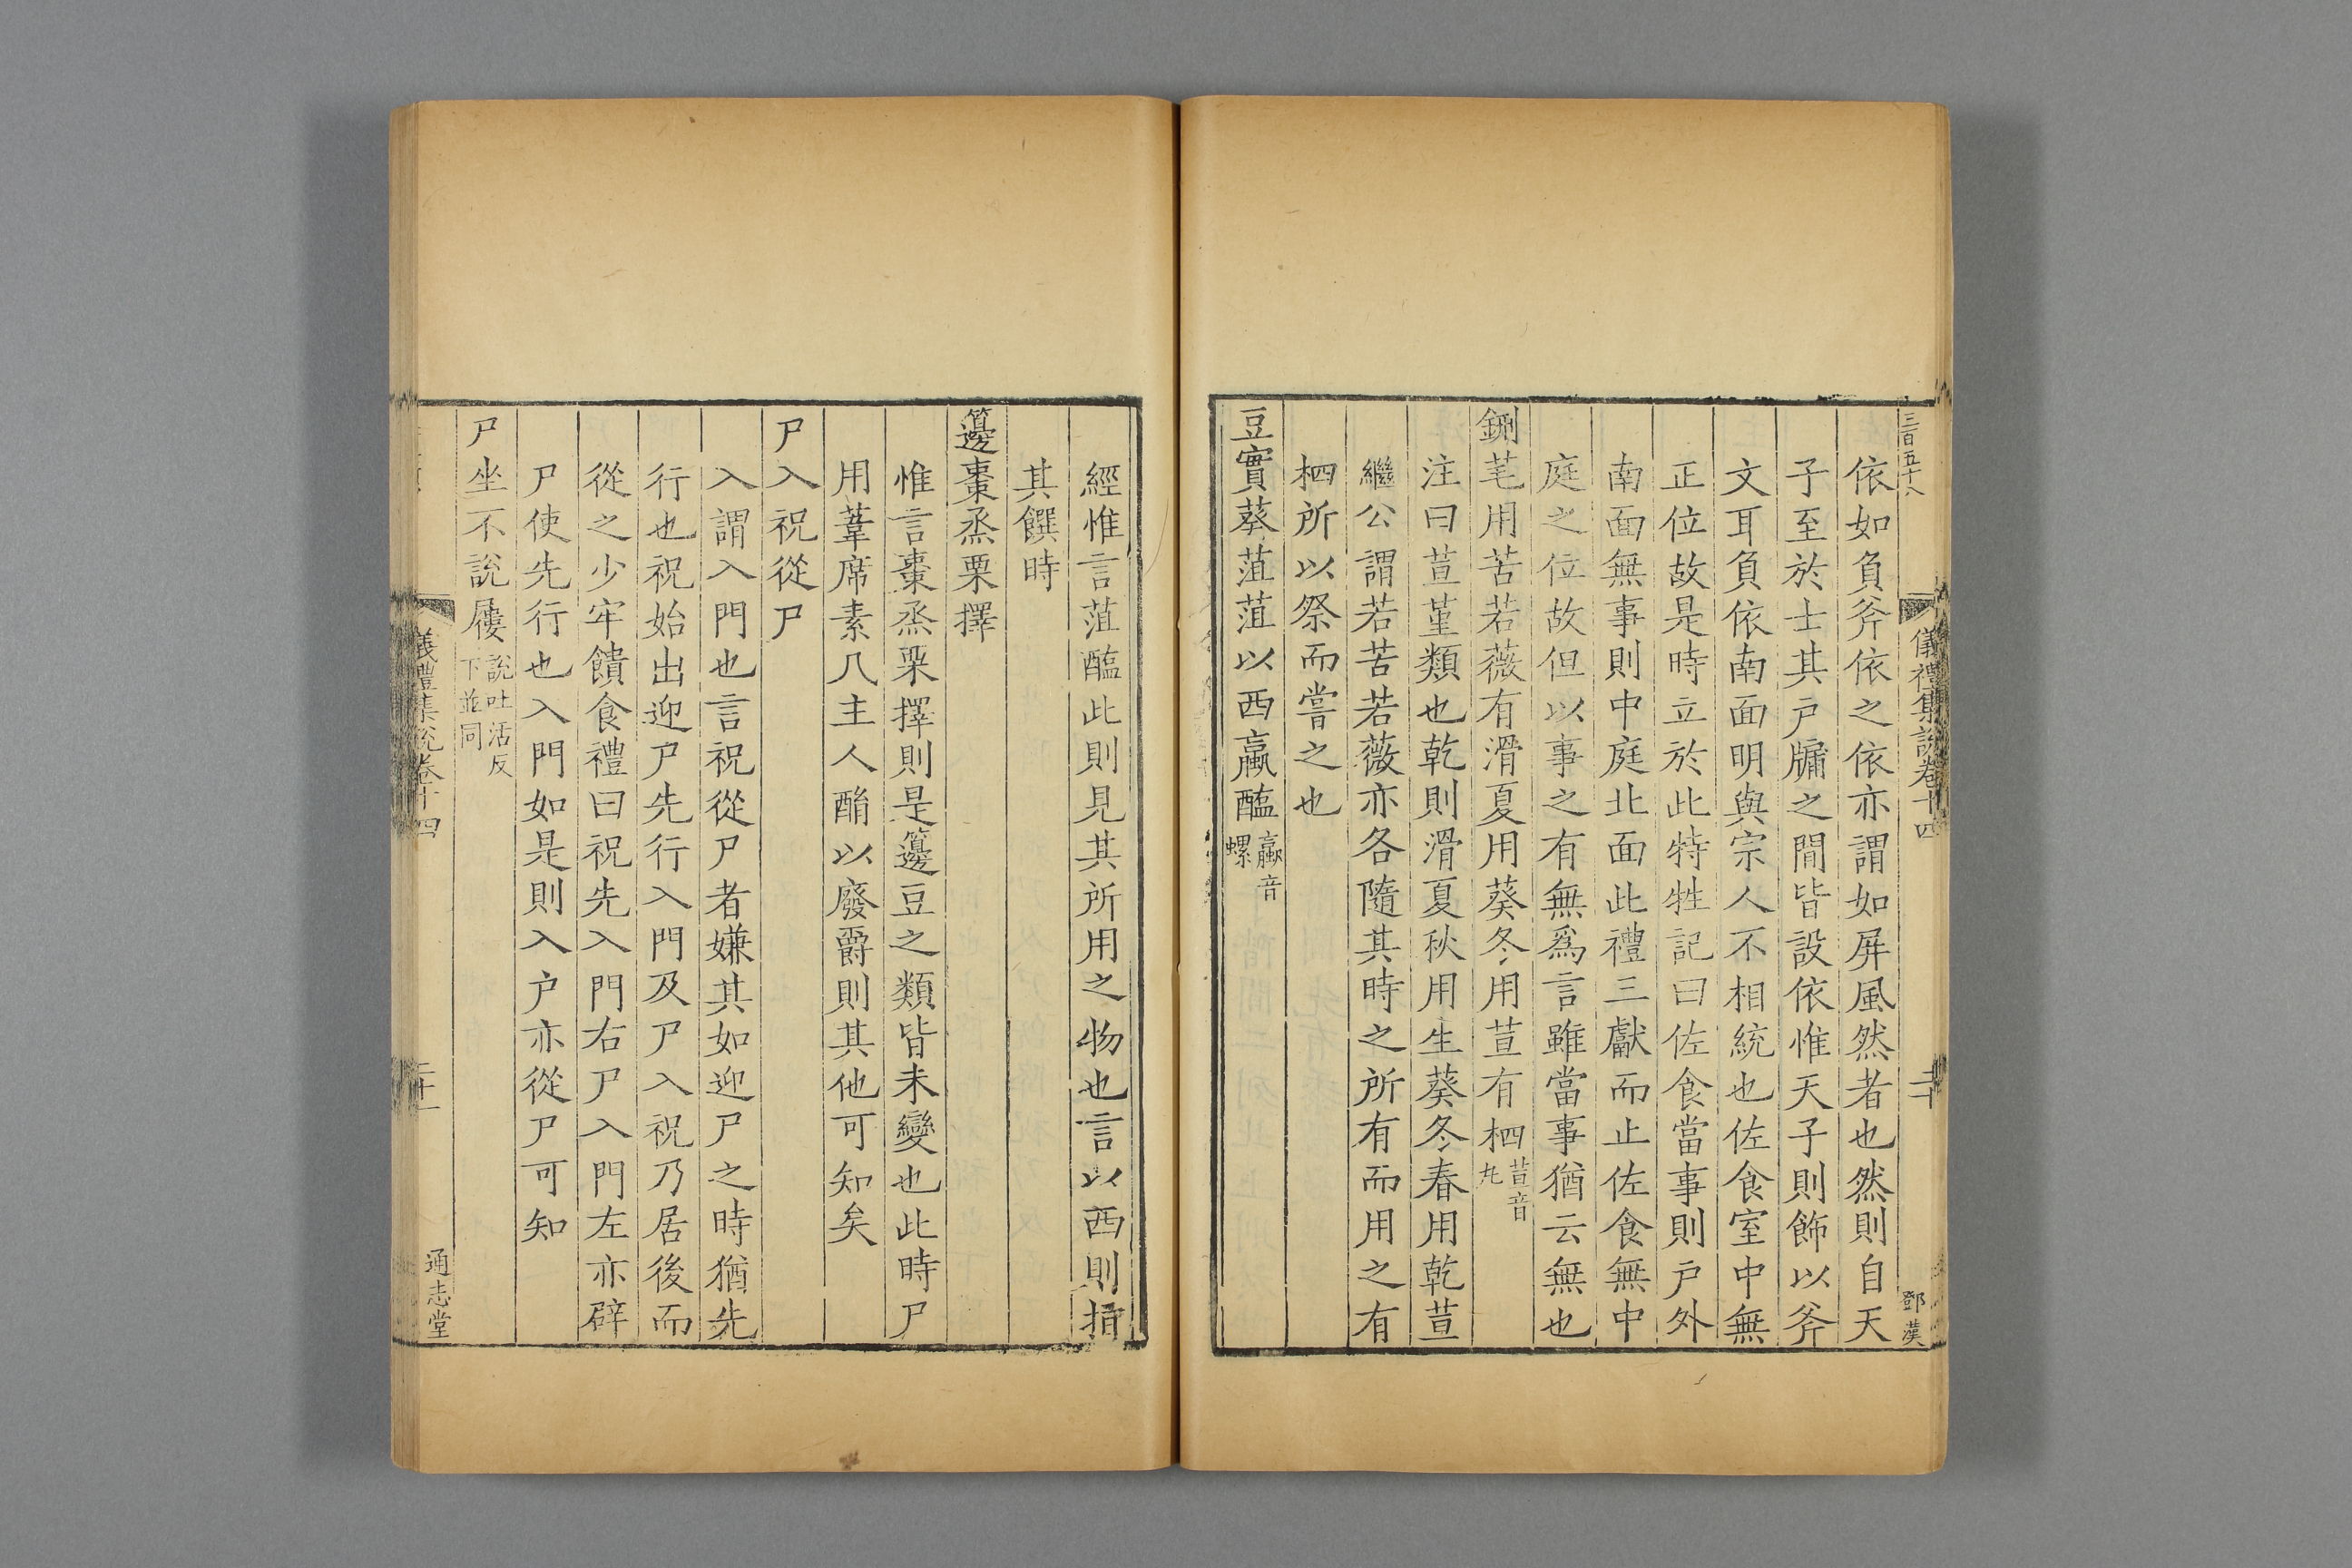 三百五十八
儀禮集說卷十四
二十
鄧漢
依如負斧依之依亦謂如屏風然者也然則自天
子至於士其戶牖之間皆設依惟天子則飾以斧
文耳負依南面明與宗人不相統也佐食室中無
正位故是時立於此特牲記曰佐食當事則戶外
南面無事則中庭北面此禮三獻而止佐食無中
庭之位故但以事之有無爲言雖當事猶云無也
鉶芼用苦若薇有滑夏用葵冬用荁有柶荁音丸
注曰荁菫類也乾則滑夏秋用生葵冬春用乾荁
繼公謂若苦若薇亦各隨其時之所有而用之有
柶所以祭而嘗之也
豆實葵菹菹以西蠃醢蠃音螺
經惟言菹醢此則見其所用之物也言以西則指
其饌時
籩棗烝栗擇
惟言棗烝栗擇則是籩豆之類皆未變也此時尸
用葦席素几主人酳以廢爵則其他可知矣
尸入祝從尸
入謂入門也言祝從尸者嫌其如迎尸之時猶先
行也祝始出迎尸先行入門及尸入祝乃居後而
從之少牢饋食禮曰祝先入門右尸入門左亦辟
尸使先行也入門如是則入户亦從尸可知
尸坐不說屨說吐活反下並同
儀禮集說卷十四
二十一
通志堂